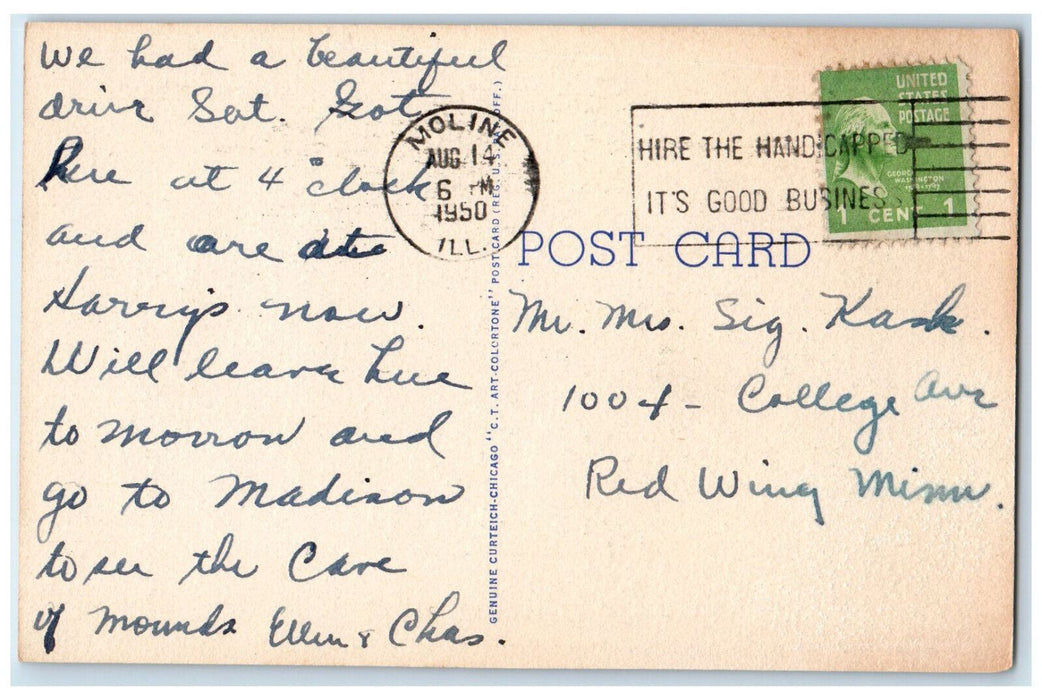 We had a beautiful
drive Sat. Got
here at 4 o'clock
and are at
Harry's now.
Will leave here
to morrow and
go to Madison
to see the Cave
of mounds Ellen & Chas.
GENUINE CURTEICH-CHICAGO "C.T. ART-COLORTONE" POST CARD (REG. U.S. OFF.)
MOLINE
AUG 14
6 PM
1950
ILL.
HIRE THE HANDICAPPED
IT'S GOOD BUSINESS
UNITED
STATES
POSTAGE
GEORGE
WASHINGTON
1 CENT 1
POST CARD
Mr. Mrs. Sig. Kask.
1004 - College Ave
Red Wing Minn.